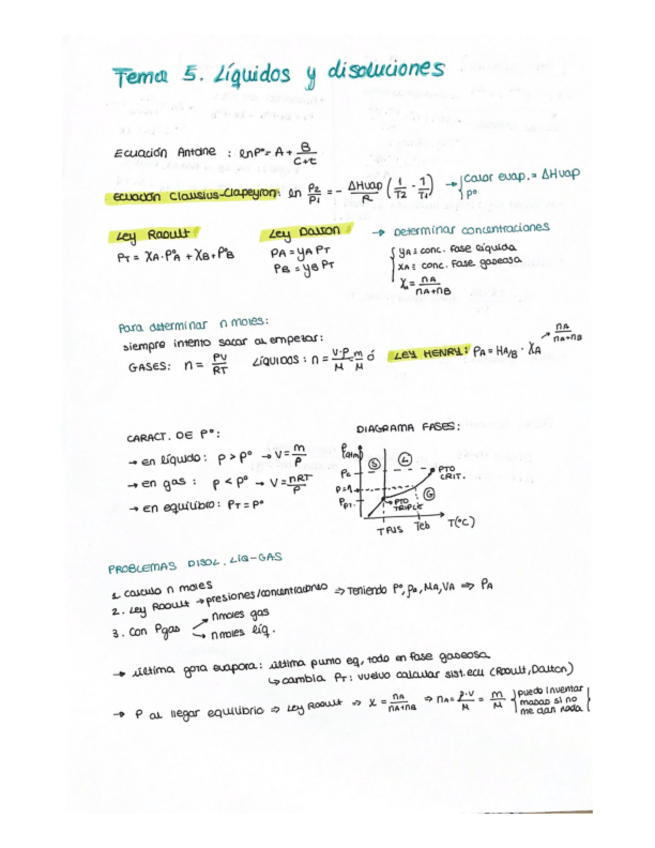 Tema 5. Líquidos y disoluciones
Ecuación Antoine : lnPº = A + B/(C+t)
Ecuación Clausius-Clapeyron: ln P2/P1 = - ΔHvap/R (1/T2 - 1/T1) → { Calor evap. = ΔHvap
pº
Ley Raoult
Ley Dalton
→ Determinar concentraciones
PT = XA·PºA + XB+PºB
PA = yA PT
PB = yB PT
{ yA ≡ conc. fase líquida
XA ≡ conc. fase gaseosa
XA = nA/(nA+nB)
Para determinar n moles:
siempre intento sacar al empezar:
GASES: n = PV/RT
LÍQUIDOS: n = V·ρ/M = m/M ó
LEY HENRY: PA = HA/B · XA
→ nA/(nA+nB)
CARACT. DE Pº:
→ en líquido: p > pº → V = m/ρ
→ en gas : p < pº → V = nRT/P
→ en equilibrio: PT = Pº
DIAGRAMA FASES:
P (atm)
S
L
G
Pc
P=1
PPT
PTO CRIT.
PTO TRIPLE
TFUS
Teb
T(ºC)
PROBLEMAS DISOL. LÍQ-GAS
1. calculo n moles
2. Ley Raoult → presiones/concentraciones ⇒ Teniendo Pº, ρA, MA, VA ⇒ PA
3. Con Pgas
→ nmoles gas
→ nmoles líq.
→ última gota evapora: último punto eq, todo en fase gaseosa
↳ cambia PT: vuelvo calcular sist. ecu (Raoult, Dalton)
→ P al llegar equilibrio ⇒ Ley Raoult ⇒ X = nA/(nA+nB) ⇒ nA = ρ·V/M = m/M { puedo inventar
masas si no
me dan nada }